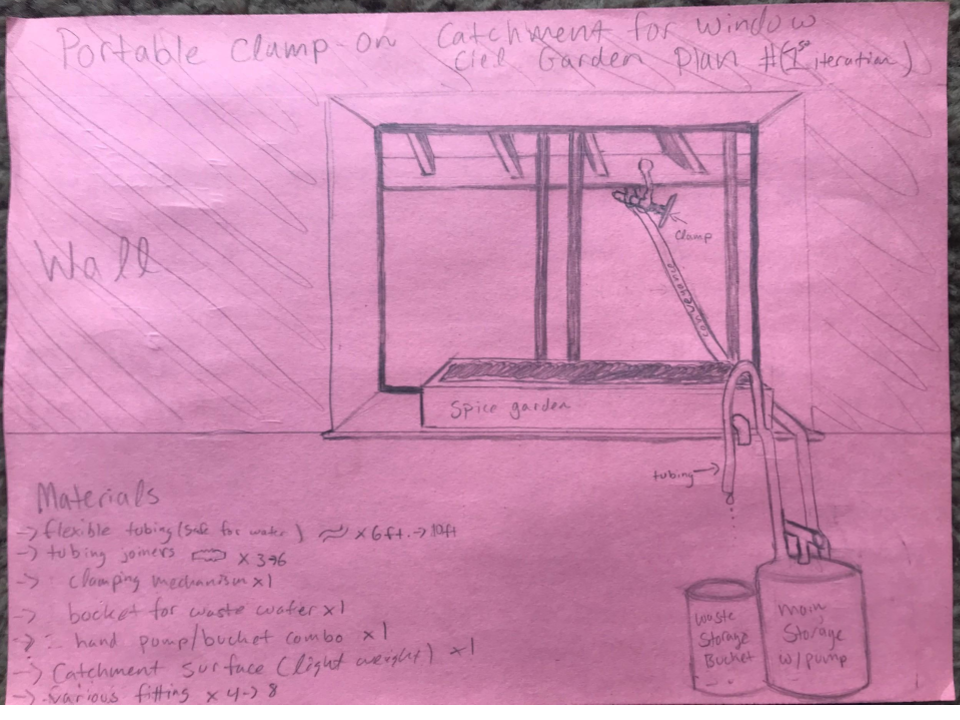 Portable Clamp-on Catchment for window
Ciel Garden Plan #(1st iteration)
Wall
clamp
Spice garden
tubing →
Materials
→ flexible tubing (safe for water) x 6ft. → 10ft
→ tubing joiners x 3→6
→ clamping mechanism x1
→ bocket for waste water x1
→ hand pump/bucket combo x1
→ Catchment Surface (light weight) x1
→ various fitting x 4→8
waste
Storage
Bucket
main
Storage
w/pump